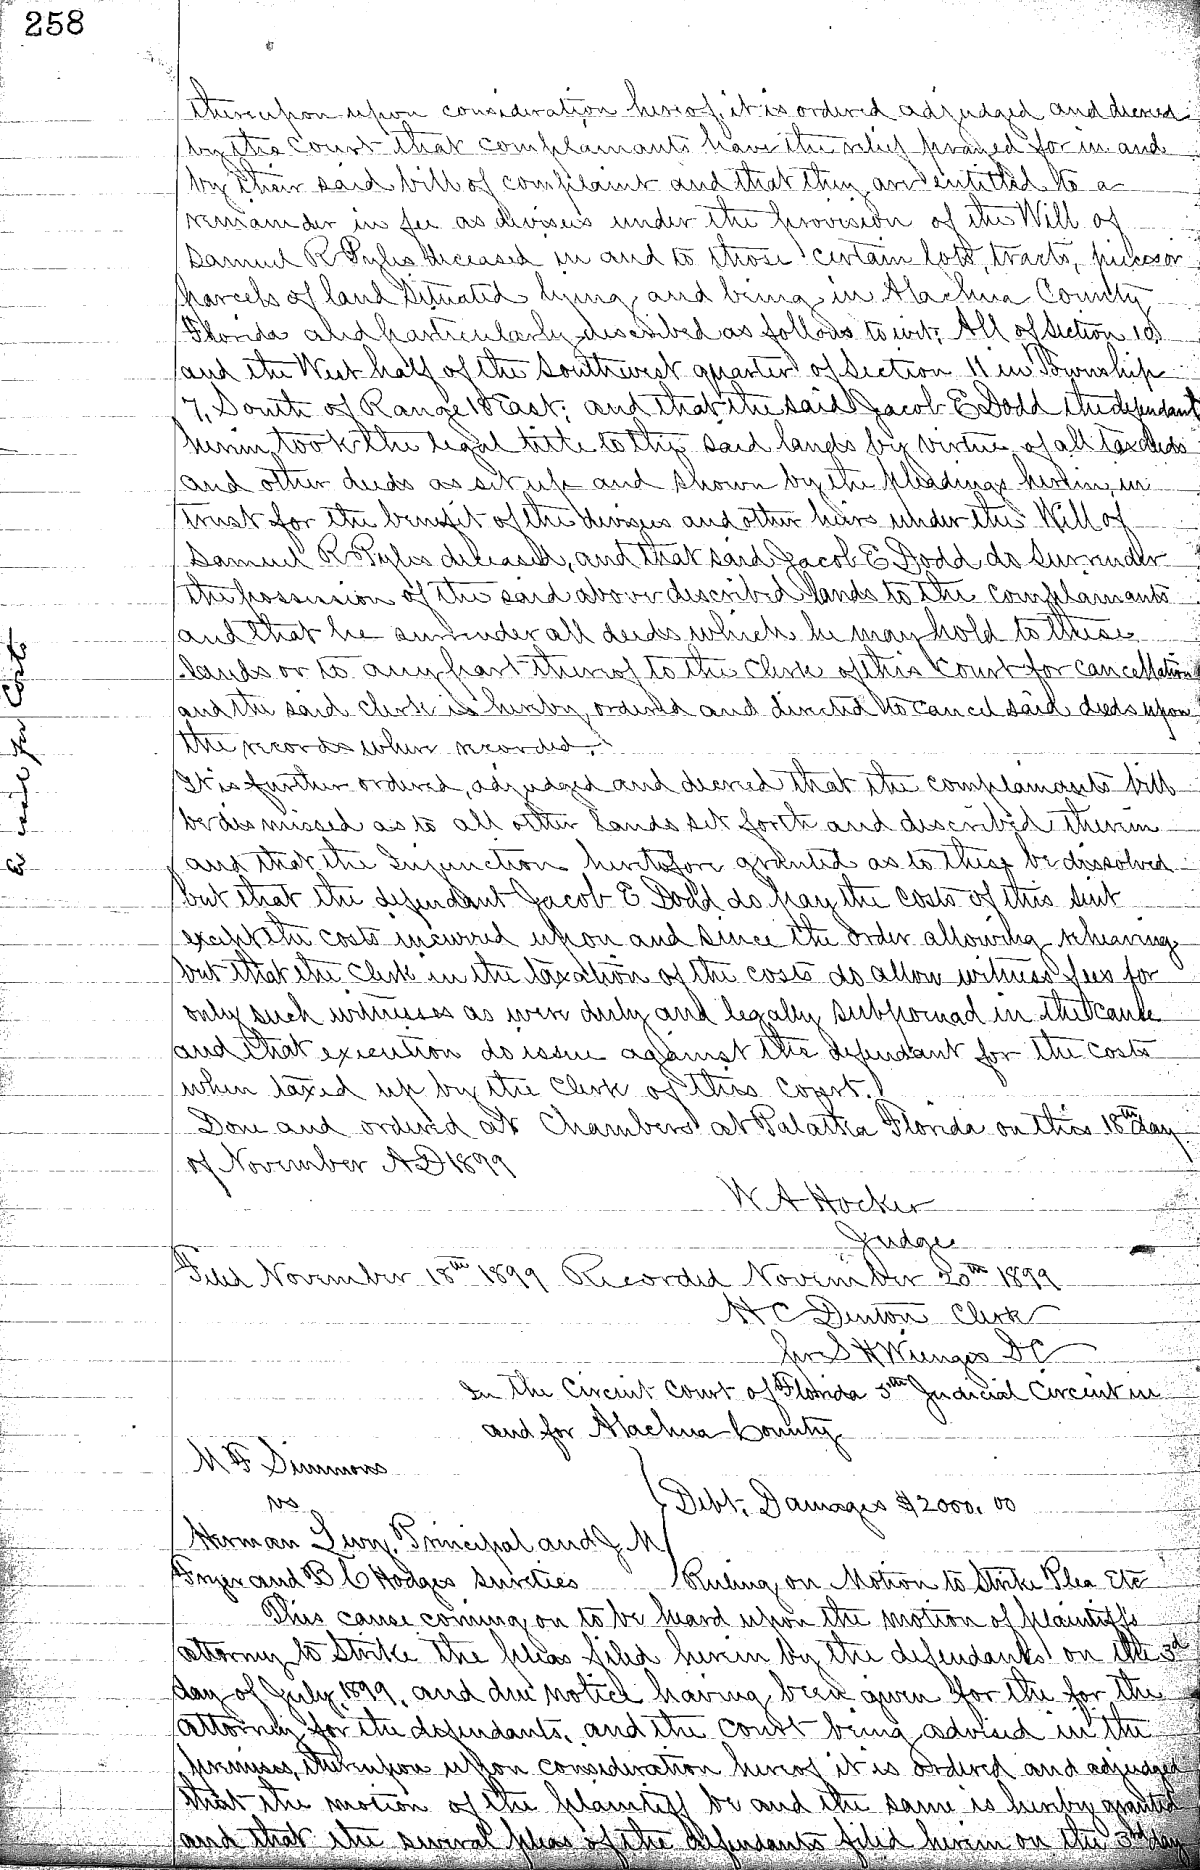 258
thereupon upon consideration hereof, it is ordered adjudged and decreed
by the Court that complainants have the relief prayed for in and
by their said bill of complaint and that they are entitled to a
remainder in fee as devisees under the provision of the Will of
Samuel R Pyles deceased in and to those certain lots, tracts, pieces or
parcels of land situated lying and being in Alachua County
Florida and particularly described as follows to wit; All of Section 10
and the West half of the Southwest quarter of Section 11 in Township
7, South of Range 18 East; and that the said Jacob E Dodd the defendant
herein took the legal title to the said lands by virtue of all tax deeds
and other deeds as set up and shown by the pleadings herein, in
trust for the benefit of the devisees and other heirs under the Will of
Samuel R Pyles deceased, and that said Jacob E Dodd do surrender
the possession of the said above described lands to the complainants
and that he surrender all deeds which he may hold to these
lands or to any part thereof to the Clerk of this Court for cancellation
and the said Clerk is hereby ordered and directed to cancel said deeds upon
the records when recorded.
It is further ordered, adjudged and decreed that the complainants bill
be dismissed as to all other lands set forth and described therein
and that the Injunction heretofore granted as to these be dissolved
but that the defendant Jacob E Dodd do pay the costs of this suit
except the costs incurred upon and since the order allowing rehearing
but that the Clerk in the taxation of the costs do allow witness fees for
only such witnesses as were duly and legally subpoenad in the cause
and that execution do issue against the defendant for the costs
when taxed up by the Clerk of this Court.
Done and ordered at Chambers at Palatka Florida on this 18th day
of November AD 1899
W A Hocker
Judge
Filed November 18th 1899 Recorded November 20th 1899
H C Denton Clerk
per S H Wienges DC
for Costs
In the Circuit Court of Florida 5th Judicial Circuit in
and for Alachua County
M F Simmons
vs
Debt, Damages $2000.00
Herman Levy, Principal and J M
Fryer and B C Hodges sureties Ruling on Motion to Strike Plea Etc
This cause coming on to be heard upon the motion of plaintiffs
attorney to strike the pleas filed herein by the defendants on the 3d
day of July 1899, and due notice having been given for the for the
attorney for the defendants, and the court being advised in the
premises, thereupon upon consideration hereof it is ordered and adjudged
that the motion of the plaintiff be and the same is hereby granted
and that the several pleas of the defendants filed herein on the 3rd day